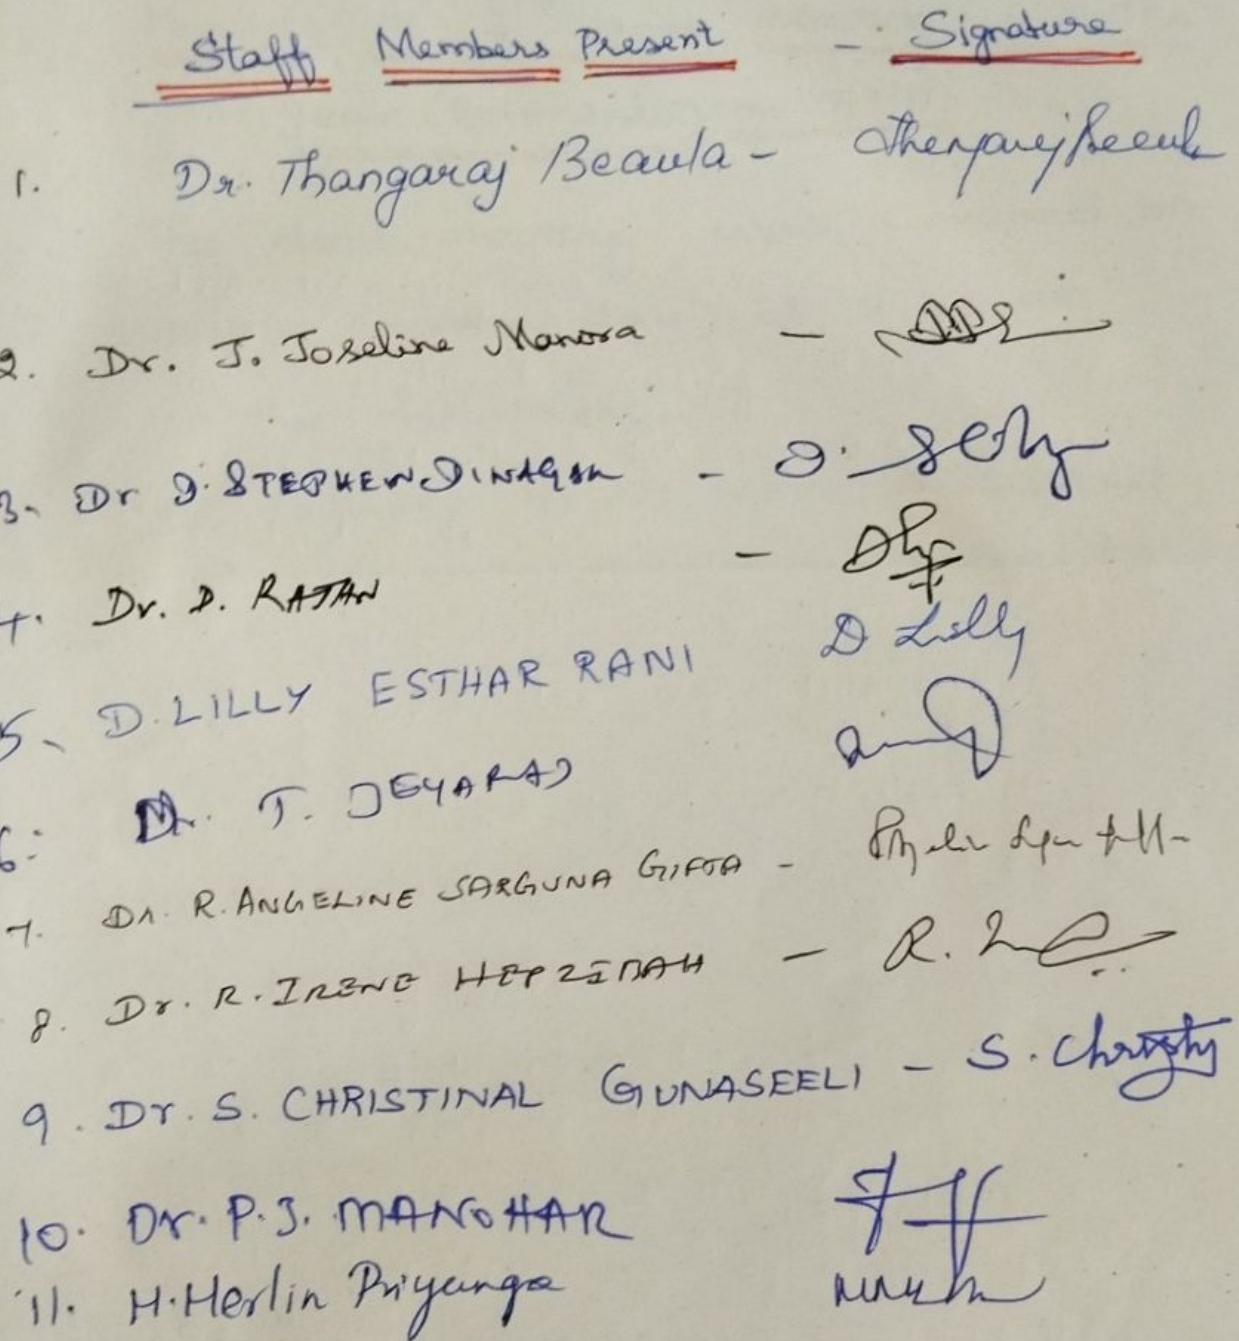 Staff Members Present - Signature
1. Dr. Thangaraj Beaula -
2. Dr. J. Joseline Manora -
3. Dr D. STEPHEN DINAGAR - D.
4. Dr. D. RAJAN -
5. D. LILLY ESTHAR RANI D Lilly
6. Dr. T. JEYARAJ
7. Dr. R. ANGELINE SARGUNA GIFTA -
8. Dr. R. IRENE HEPZIBAH - R.
9. Dr. S. CHRISTINAL GUNASEELI - S. Christy
10. Dr. P. J. MANOHAR
11. H. Herlin Priyanga